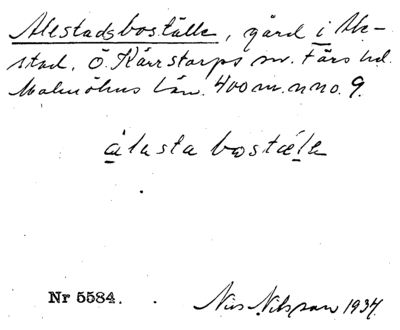 Alestadsboställe, gård i Ale-
stad. Ö. Kärrstorps sn. Färs hd.
Malmöhus län. 400 m. n no. 9.
àlasta bostæ̀lе
Nr 5584.
Nils Nilsson 1937.